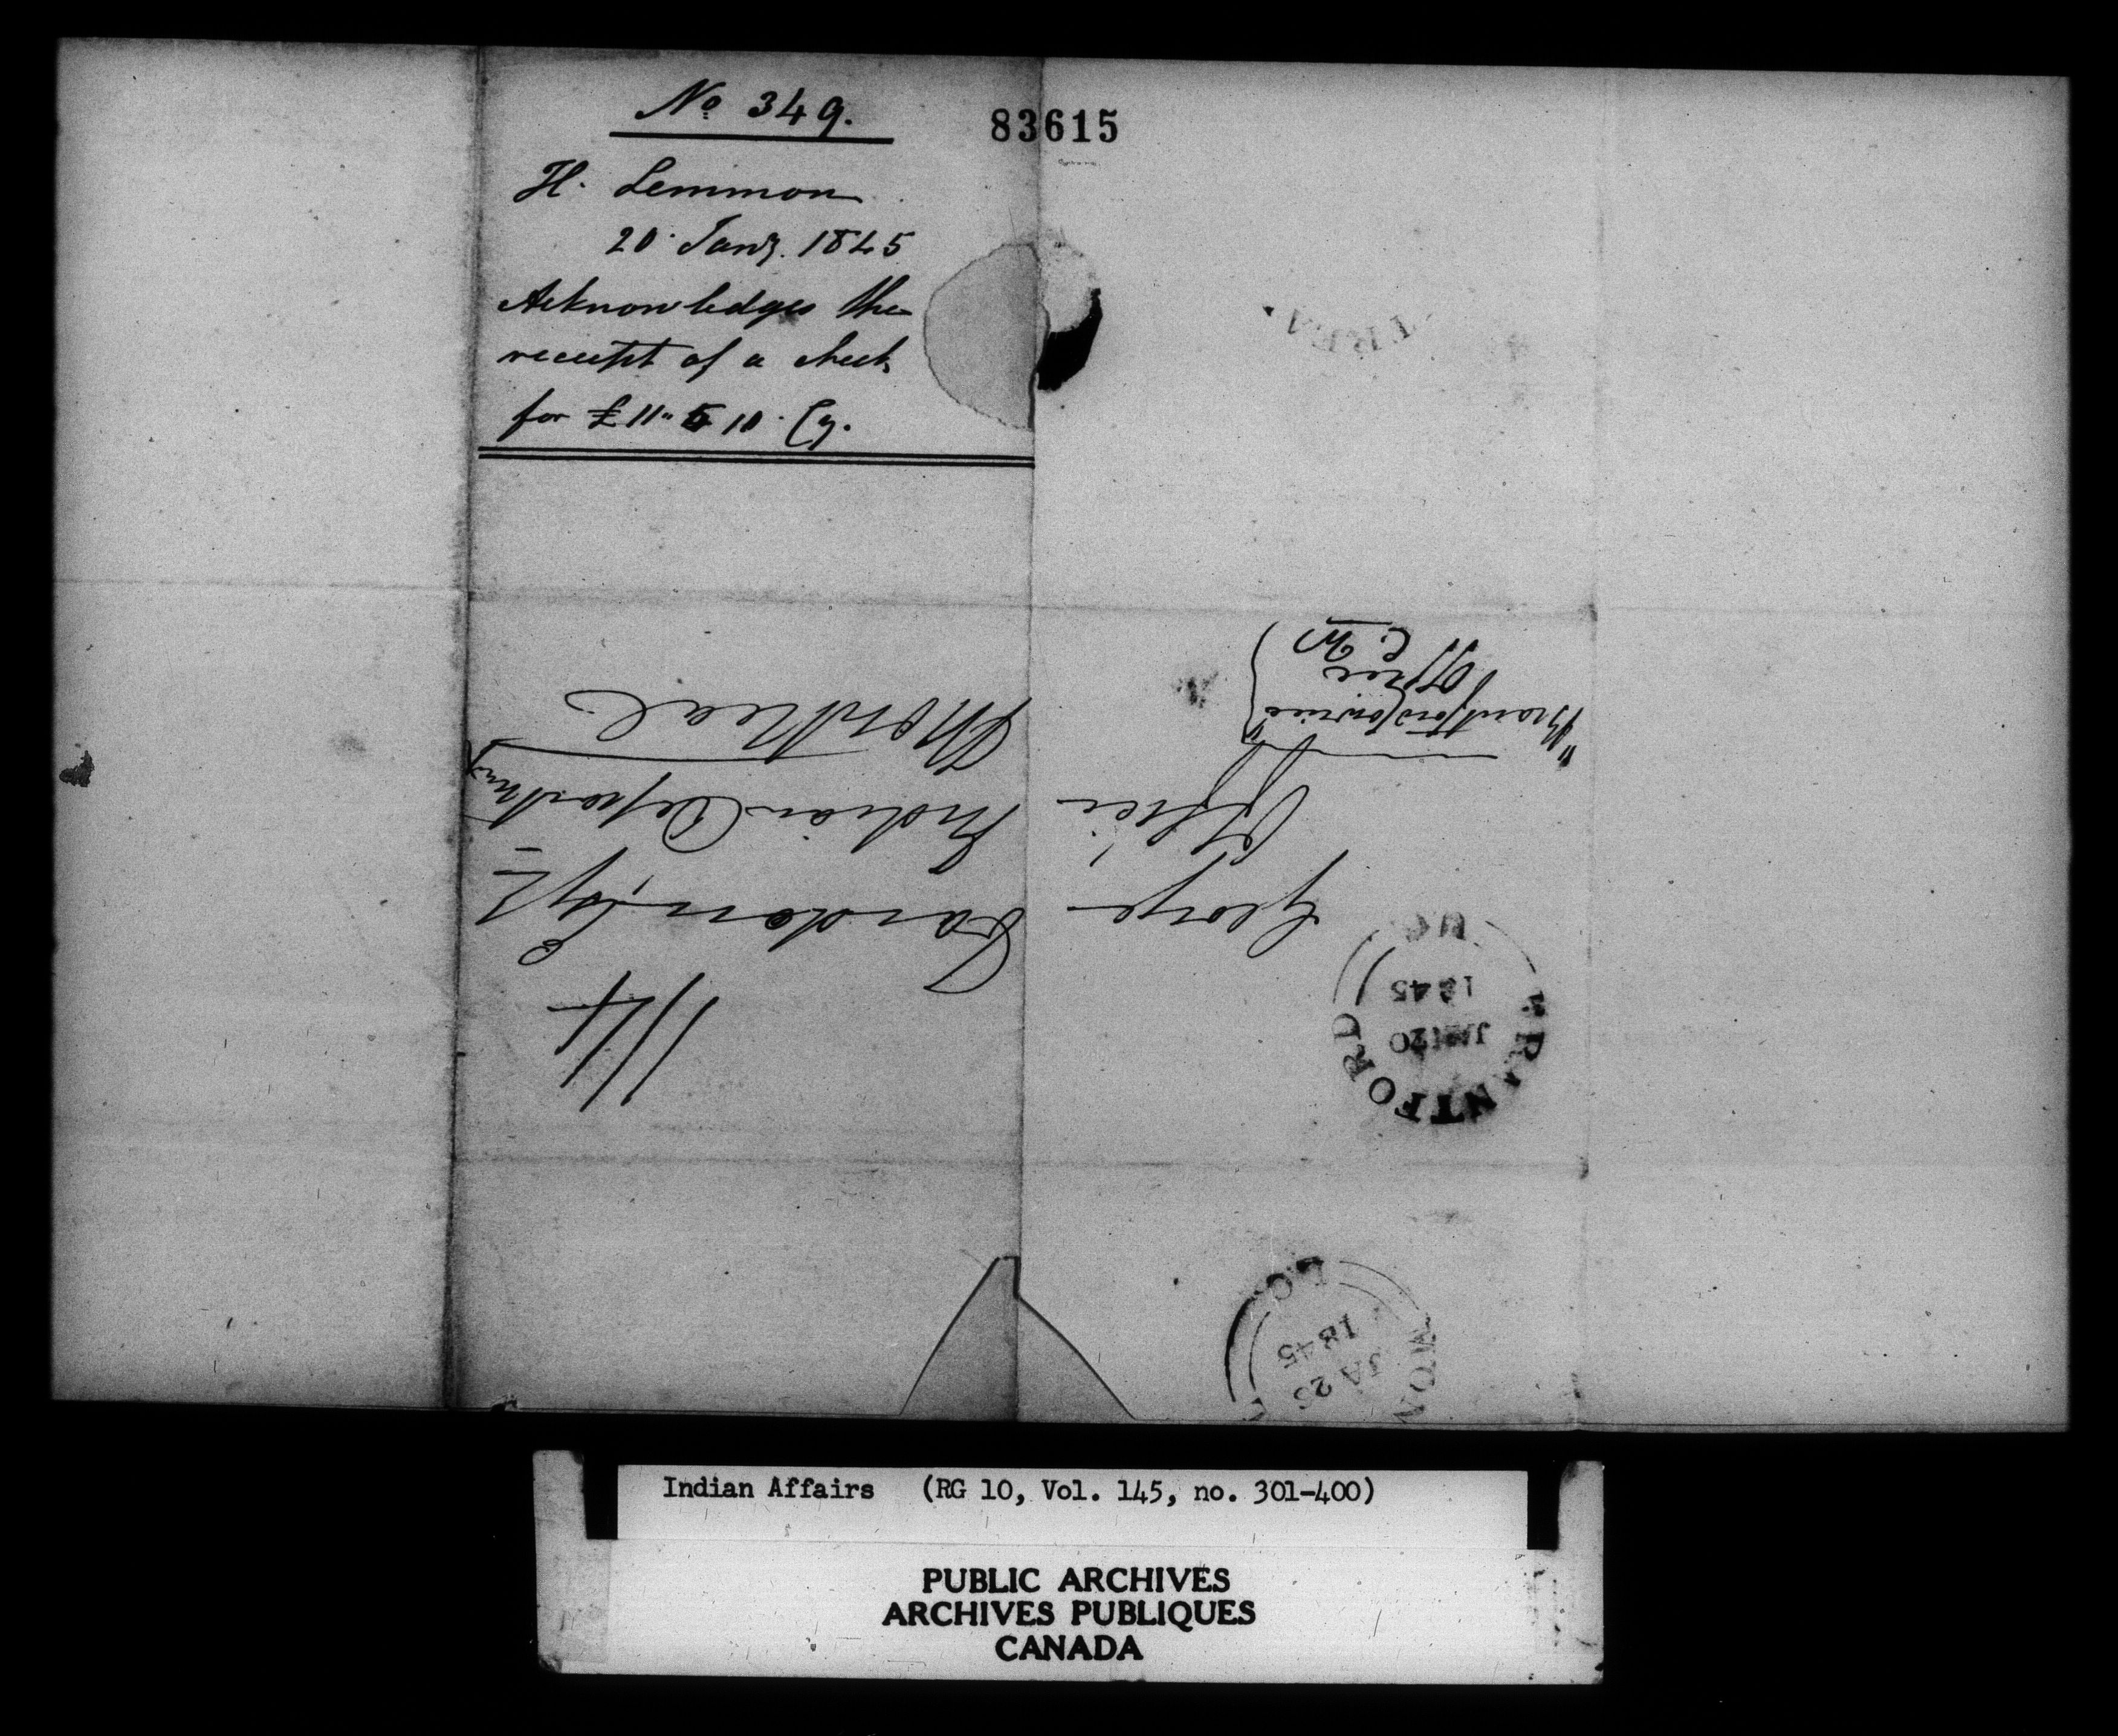 No 349.
83615
H. Lemmon
20 Jany. 1845
Acknowledges the
receipt of a check
for £11" 5 10 Cy.
"Brantford Courier"
Office
C. W.
George Vardon, Esqr
Office Indian Department
Montreal
1/4
BRANTFORD
JAN 20
1845
U.C
JA 25
1845
L.C
Indian Affairs (RG 10, Vol. 145, no. 301-400)
PUBLIC ARCHIVES
ARCHIVES PUBLIQUES
CANADA